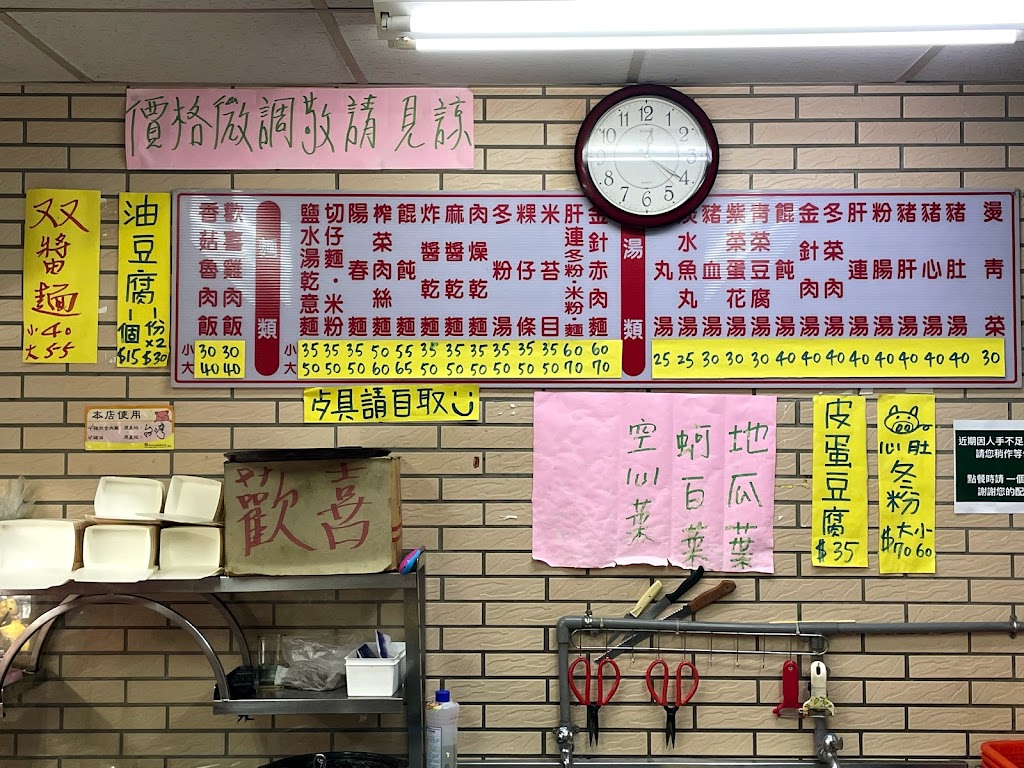 價格微調敬請見諒
双醬麵
小40
大55
油豆腐
一個$15
一份x2$30
香菇魯肉飯 小30 大40
歡喜雞肉飯 30 40
類
鹽水湯乾意麵 小35 大50
切仔麵·米粉 35 50
陽春麵 35 50
榨菜肉絲麵 50 60
餛飩麵 55 65
炸醬乾麵 35 50
麻醬乾麵 35 50
肉燥乾麵 35 50
冬粉湯 35 50
粿仔條 35 50
米苔目 35 50
肝連冬粉·米粉·麵 60 70
針赤肉麵 60 70
湯類
水魚丸湯
丸湯
豬血湯
紫菜蛋花湯
青菜豆腐湯
餛飩湯
金針肉湯
冬菜肉湯
肝連湯
粉腸湯
豬肝湯
豬心湯
豬肚湯
燙青菜
25 25 30 30 30 40 40 40 40 40 40 40 40 30
12 1 2 3 4 5 6 7 8 9 10 11
具請自取
本店使用
台灣
歡喜
地瓜葉
蚵白菜
空心菜
皮蛋豆腐
$35
心肚冬粉
大小
$70 60
近期因人手不足
請您稍作等
點餐時請一個
謝謝您的配